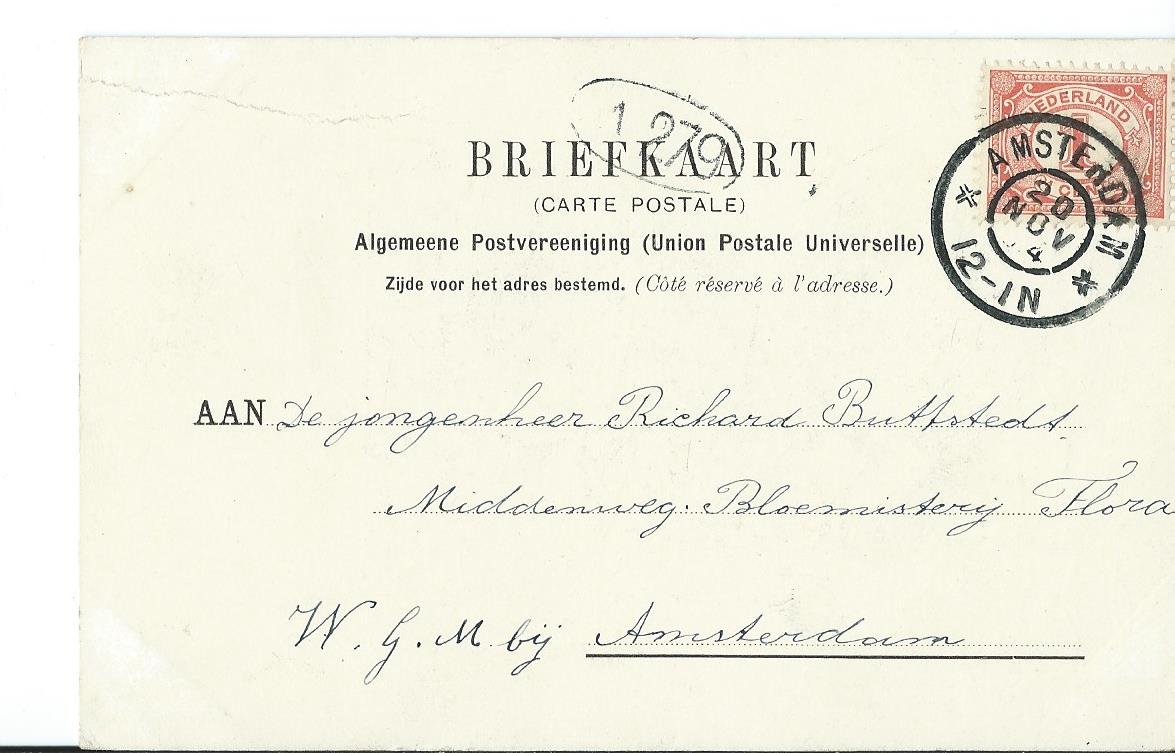 1 279
NEDERLAND
1
AMSTERDAM
20
NOV
4
12-1N
BRIEFKAART
(CARTE POSTALE)
Algemeene Postvereeniging (Union Postale Universelle)
Zijde voor het adres bestemd. (Côté réservé à l'adresse.)
AAN De jongenheer Richard Buttstedt
Middenweg. Bloemisterij Flora
W. G. M bij Amsterdam